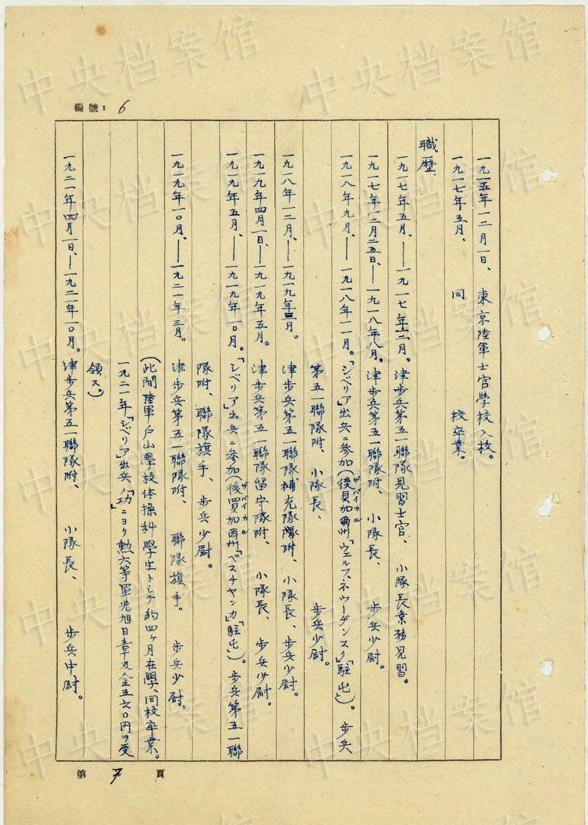 編號：6
一九一五年一二月一日、東京陸軍士官學校入校。
一九一七年五月、同校卒業。
職歴、
一九一七年五月、——一九一七年一二月。津歩兵第五一聯隊見習士官、小隊長業務見習。
一九一七年一二月二五日、——一九一八年八月。津歩兵第五一聯隊附、小隊長、歩兵少尉。
一九一八年九月、——一九一八年一一月。「シベリア」出兵ニ参加（後貝加爾州「ウェルフネウーヂンスク」駐屯）。歩兵
ザバイカル
第五一聯隊附、小隊長、歩兵少尉。
一九一八年一二月、——一九一九年三月。津歩兵第五一聯隊補充隊附、小隊長、歩兵少尉。
一九一九年四月一日、——一九一九年五月。津歩兵第五一聯隊留守隊附、小隊長、歩兵少尉。
一九一九年五月、——一九一九年一〇月。「シベリア」出兵ニ参加（後貝加爾州「ペスチヤンカ」駐屯）。歩兵第五一聯
ザバイカル
隊附、聯隊旗手、歩兵少尉。
一九一九年一〇月、——一九二一年三月。津歩兵第五一聯隊附、聯隊旗手。歩兵少尉。
（此間陸軍戸山學校体操科學生トシテ約四ヶ月在學、同校卒業。
一九二一年「シベリア出兵ノ功」ニヨリ勲六等單光旭日章及金五六〇円ヲ受
領ス。）
一九二一年四月一日、——一九二一年一〇月。津歩兵第五一聯隊附、小隊長、歩兵中尉。
第 7 頁
中央档案馆